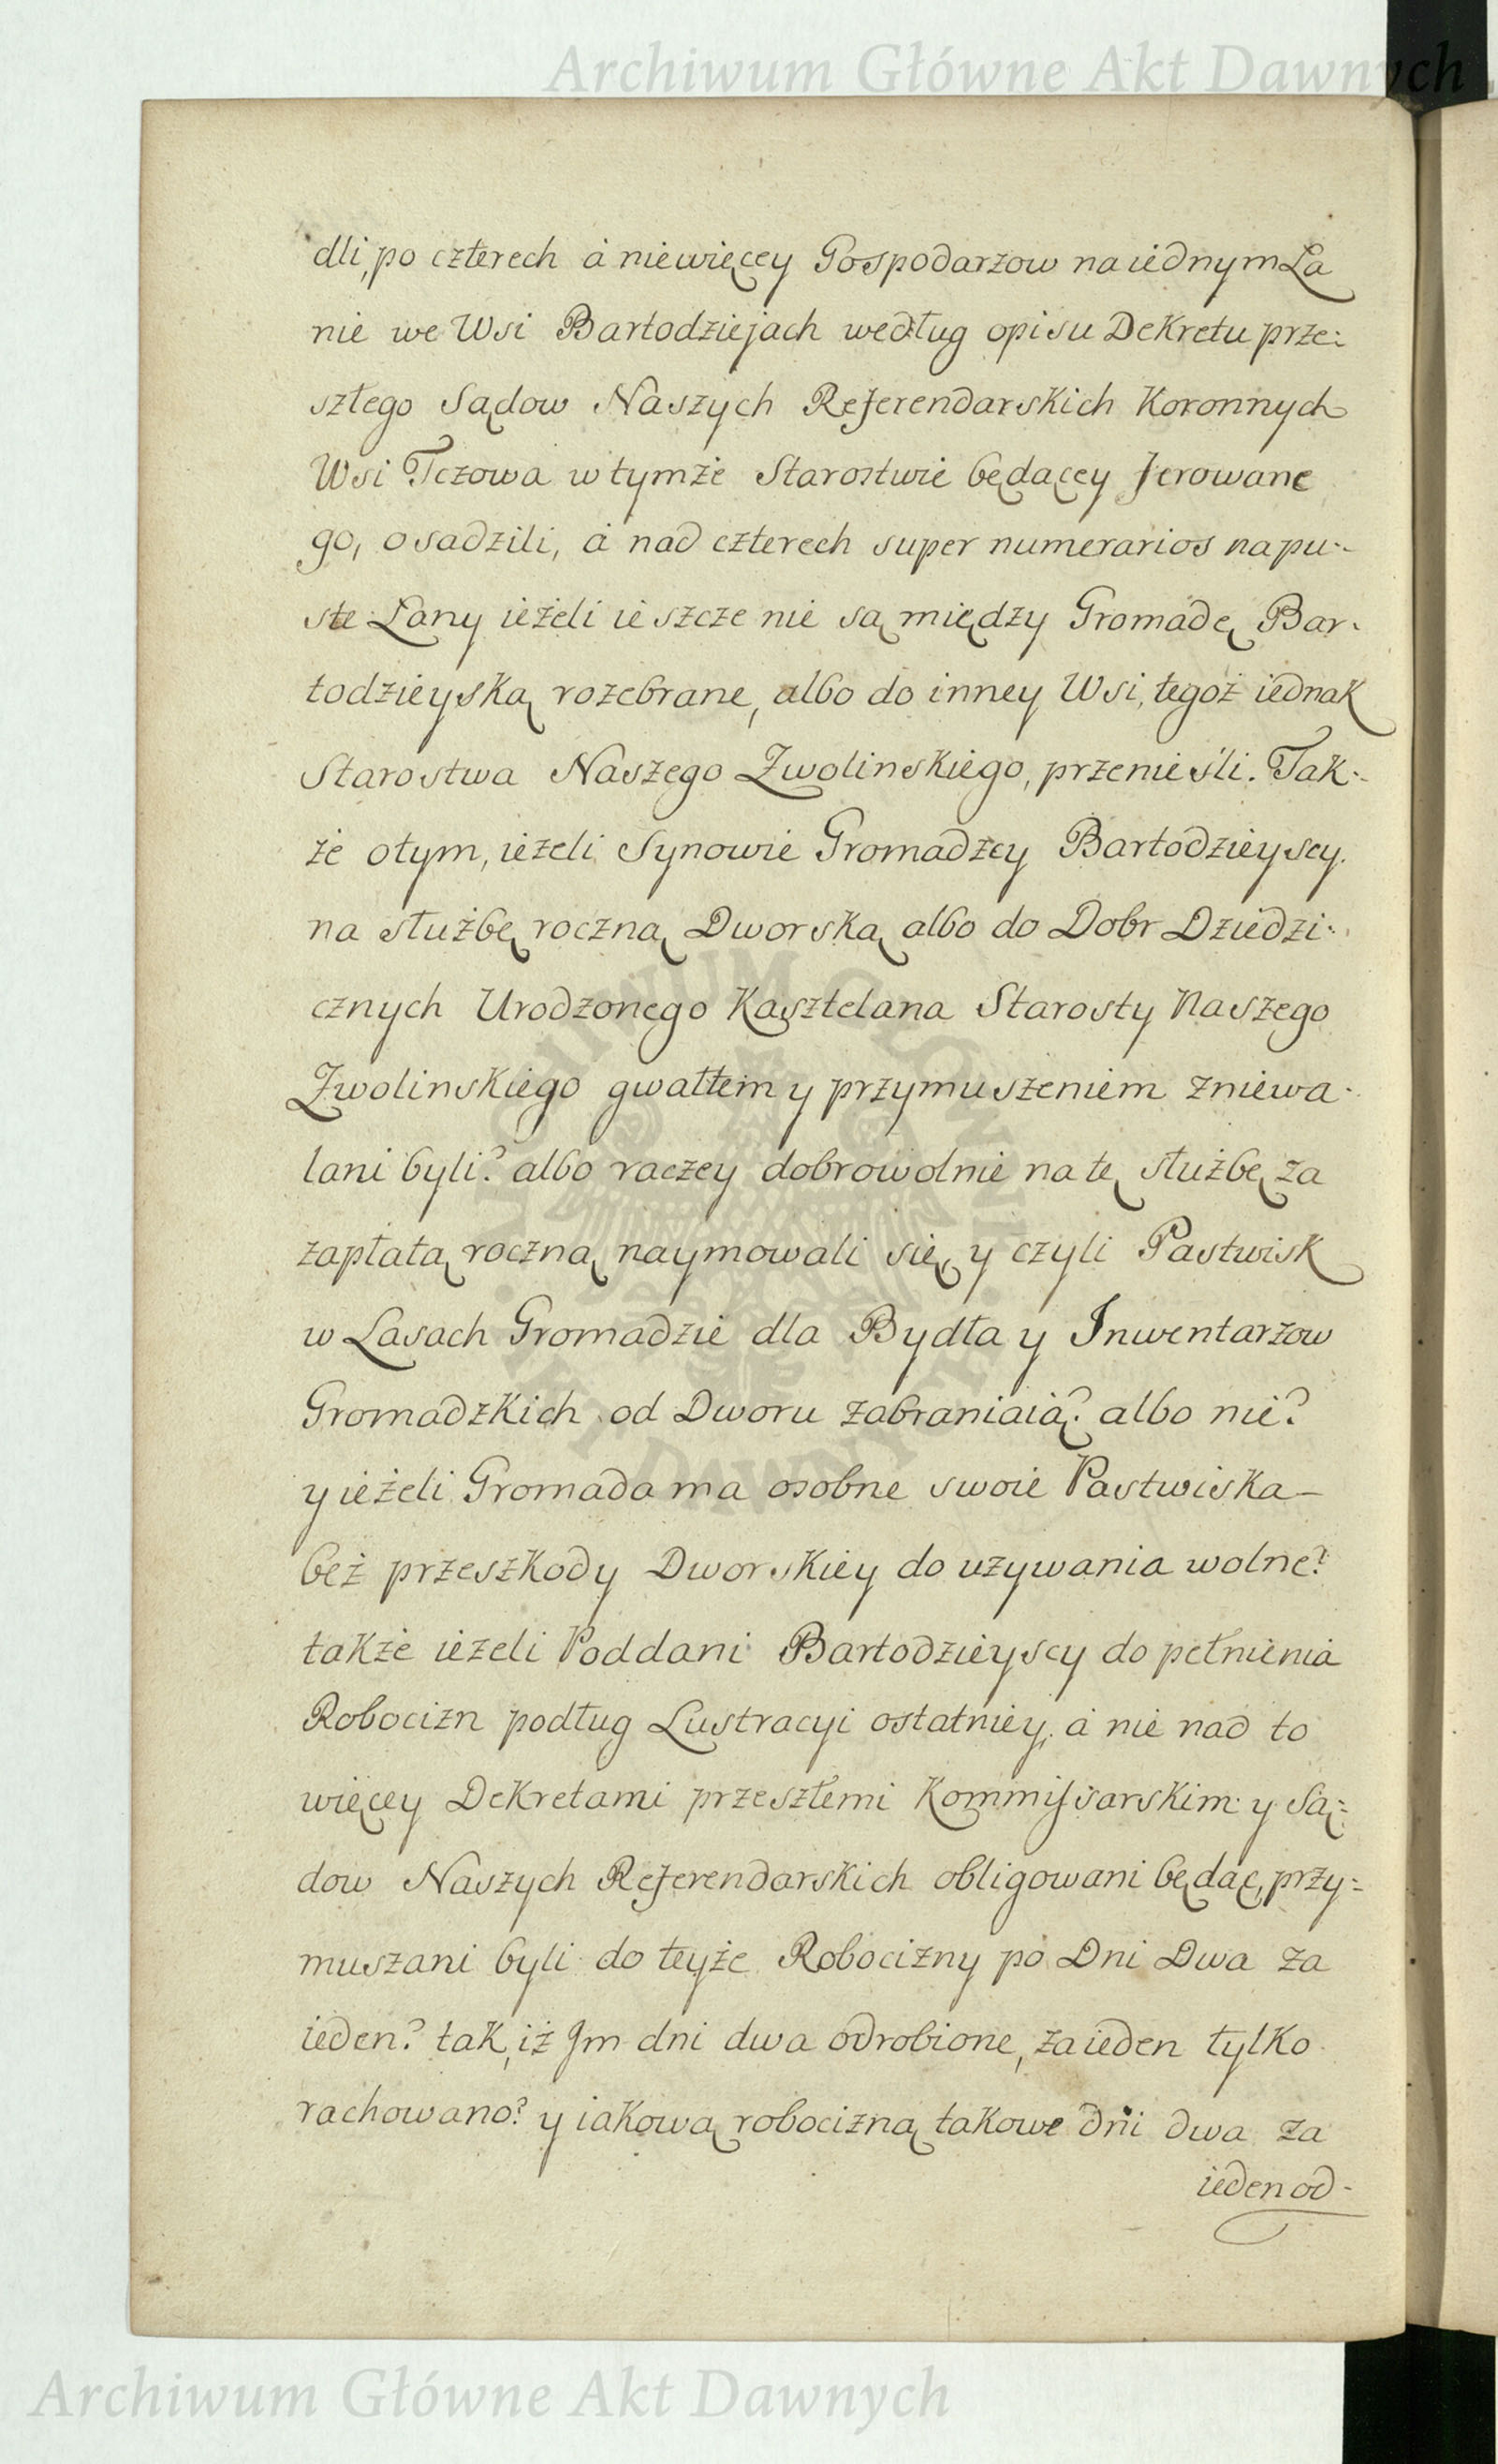 Archiwum Główne Akt Dawnych
dli, po czterech á niewięcey Gospodarzow na iednym Ła
nie we Wsi Bartodziejach według opisu Dekretu prze:
szłego Sądow Naszych Referendarskich Koronnych
Wsi Tczowa w tymże Starostwie będącey ferowane
go, osadzili, á nad czterech super numerarios na pu:
ste Łany ieżeli ieszcze nie są między Gromadę Bar:
todzieyską rozebrane, albo do inney Wsi, tegoż iednak
Starostwa Naszego Zwolinskiego, przenieśli. Tak:
że otym, ieżeli Synowie Gromadzcy Bartodzieyscy
na służbę roczną Dworską albo do Dobr Dziedzi:
cznych Urodzonego Kasztelana Starosty Naszego
Zwolinskiego gwałtem y przymuszeniem zniewa:
lani byli? albo raczey dobrowolnie na tę służbę za
zapłatą roczną naymowali się, y czyli Pastwisk
w Lasach Gromadzie dla Bydła y Inwentarzow
Gromadzkich od Dworu zabraniaią? albo nie?
y ieżeli Gromada ma osobne swoie Pastwiska –
beż przeszkody Dworskiey do uzywania wolne?
także ieżeli Poddani Bartodzieyscy do pełnienia
Robocizn podług Lustracyi ostatniey, á nie nad to
więcey Dekretami przeszłemi Kommissarskim y Są:
dow Naszych Referendarskich obligowani będąc, przy:
muszani byli do teyże Robocizny po Dni Dwa za
ieden? tak, iż Jm dni dwa odrobione, za ieden tylko
rachowano? y iakową robocizną takowe dni dwa za
ieden od-
Archiwum Główne Akt Dawnych